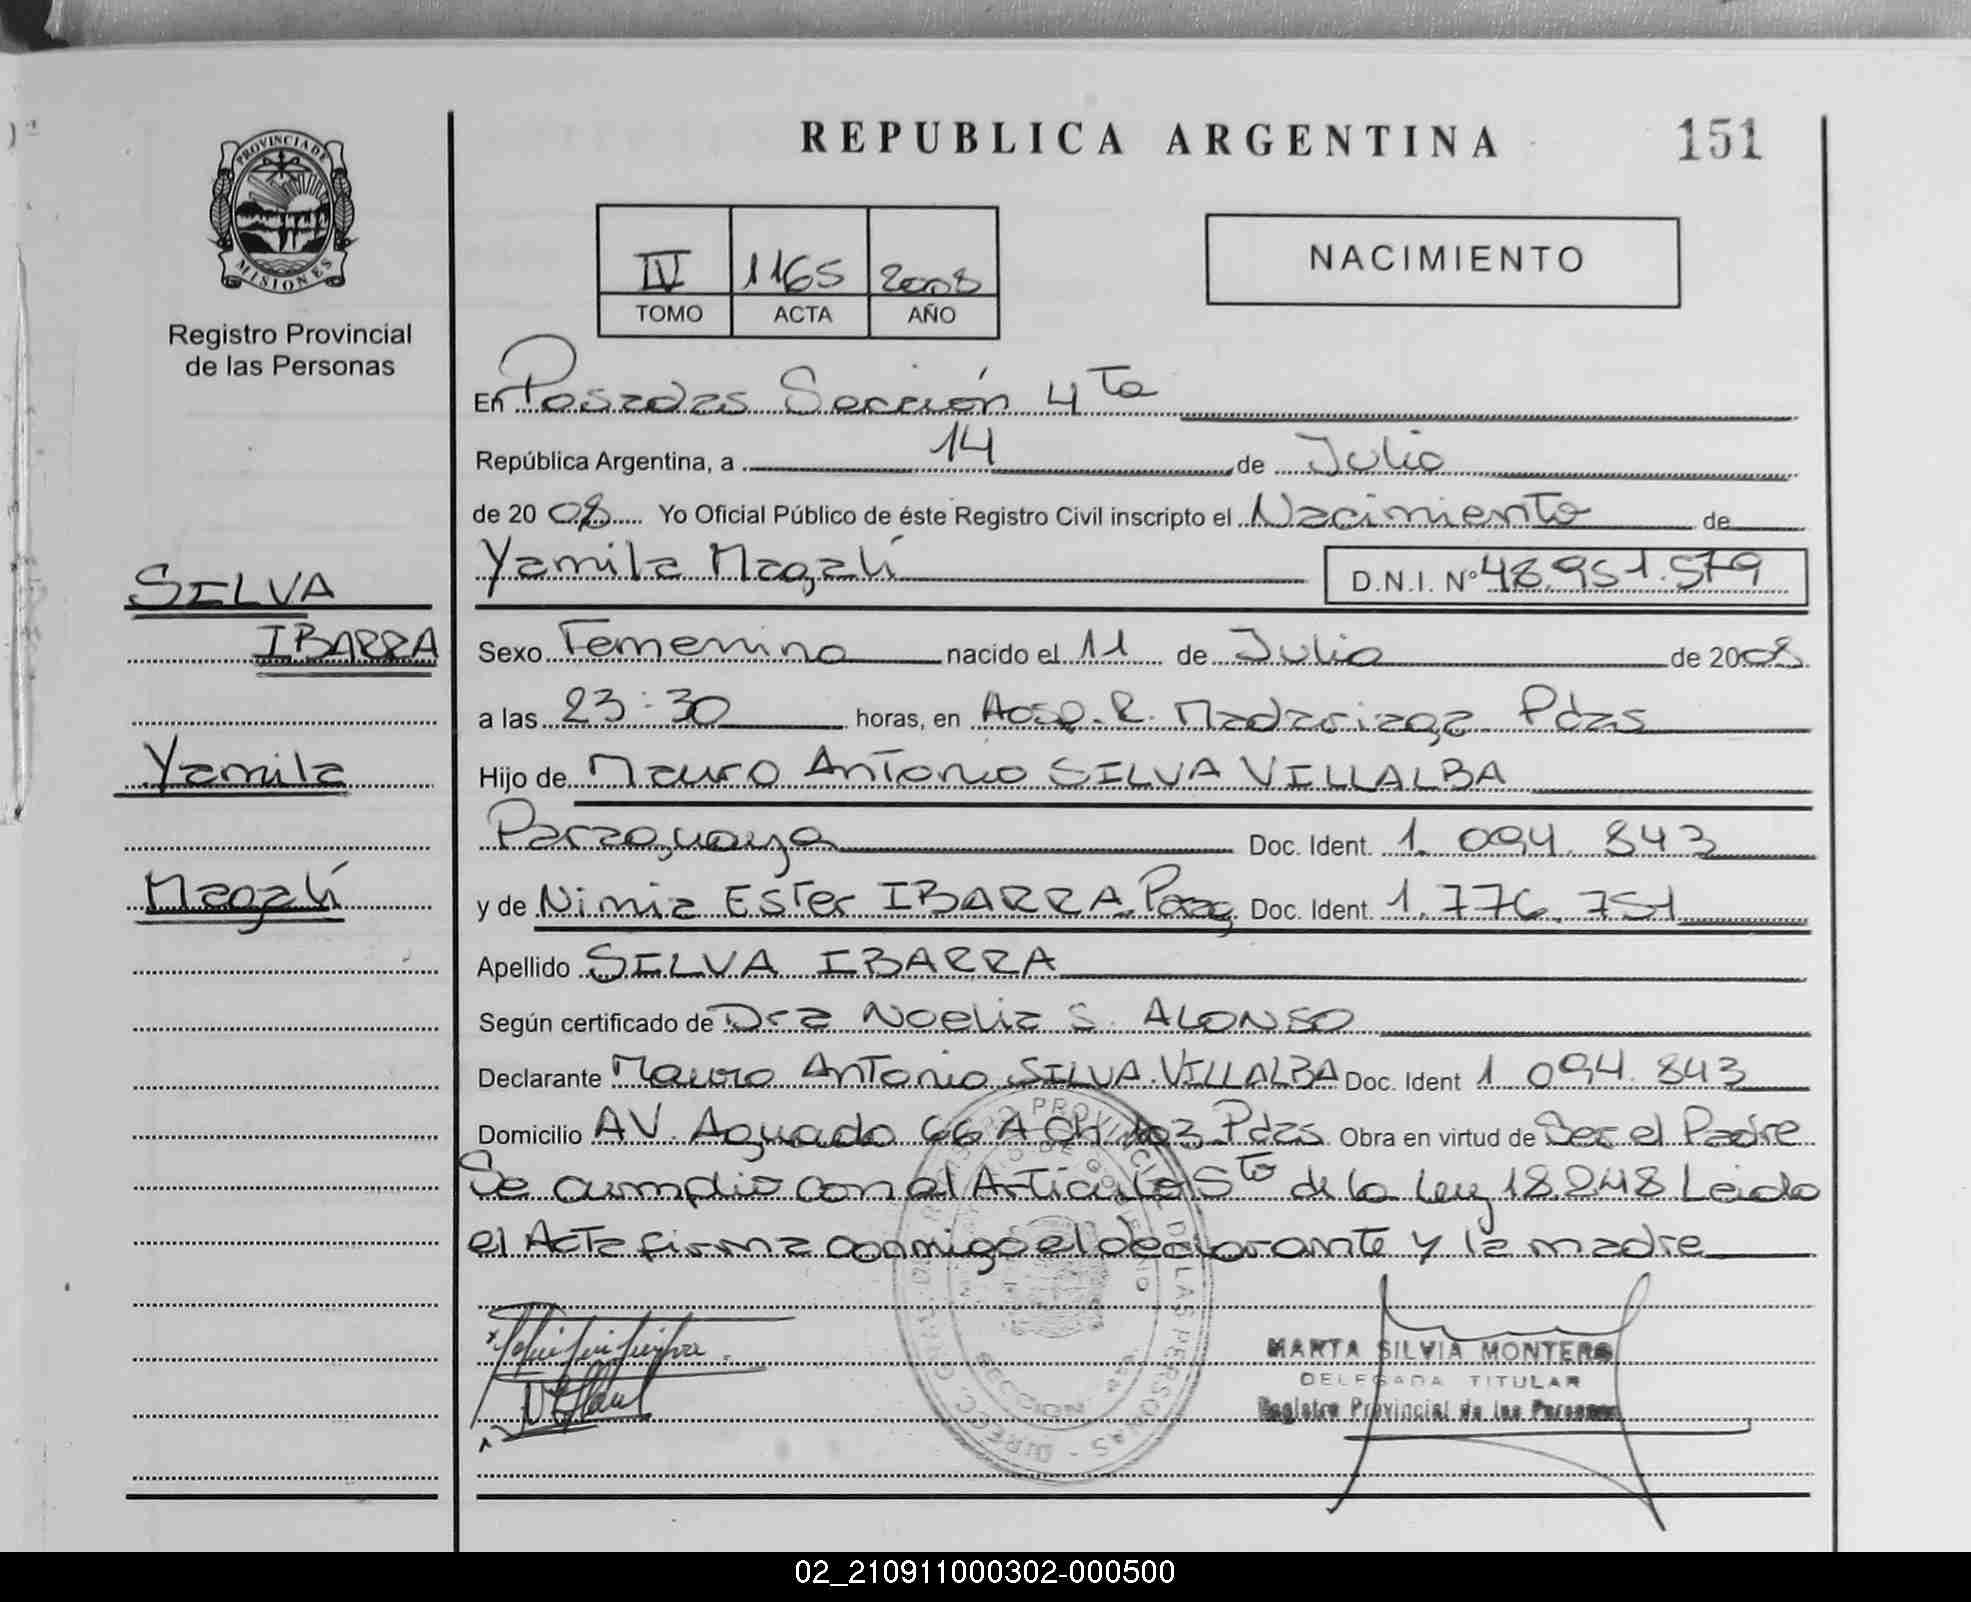 REPUBLICA ARGENTINA
151
PROVINCIA DE
MISIONES
Registro Provincial
de las Personas
IV 1165 2008
TOMO ACTA AÑO
NACIMIENTO
En Posadas Sección 4ta
República Argentina, a 14 de Julio
de 2008 Yo Oficial Público de éste Registro Civil inscripto el Nacimiento de
Yamila Magalí D.N.I. Nº 48.951.579
SILVA
IBARRA
Yamila
Magalí
Sexo Femenino nacido el 11 de Julio de 2008
a las 23:30 horas, en Hosp. R. Madariaga Pdas
Hijo de Mauro Antonio SILVA VILLALBA
Paraguaya Doc. Ident. 1.094.843
y de Nimia Ester IBARRA. Parag Doc. Ident. 1.776.751
Apellido SILVA IBARRA
Según certificado de Dra Noelia S. ALONSO
Declarante Mauro Antonio SILVA VILLALBA Doc. Ident 1 094.843
Domicilio AV. Aguado 66 A CH 103 Pdas Obra en virtud de Ser el Padre
Se cumplio con el Articulo 5to de la Ley 18.248 Leida
el Acta firma conmigo el declarante y la madre
MARTA SILVIA MONTERO
DELEGADA TITULAR
Registro Provincial de las Personas
02_210911000302-000500